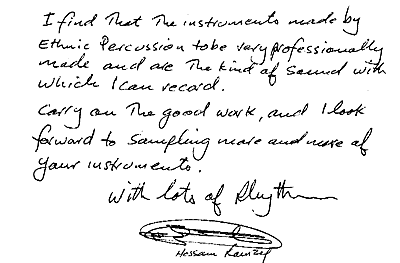 I find that the instruments made by
Ethnic Percussion to be very professionally
made and are the kind of sound with
which I can record.
Carry on the good work, and I look
forward to sampling more and more of
your instruments.
with lots of Rhythm
Hossam Ramzy